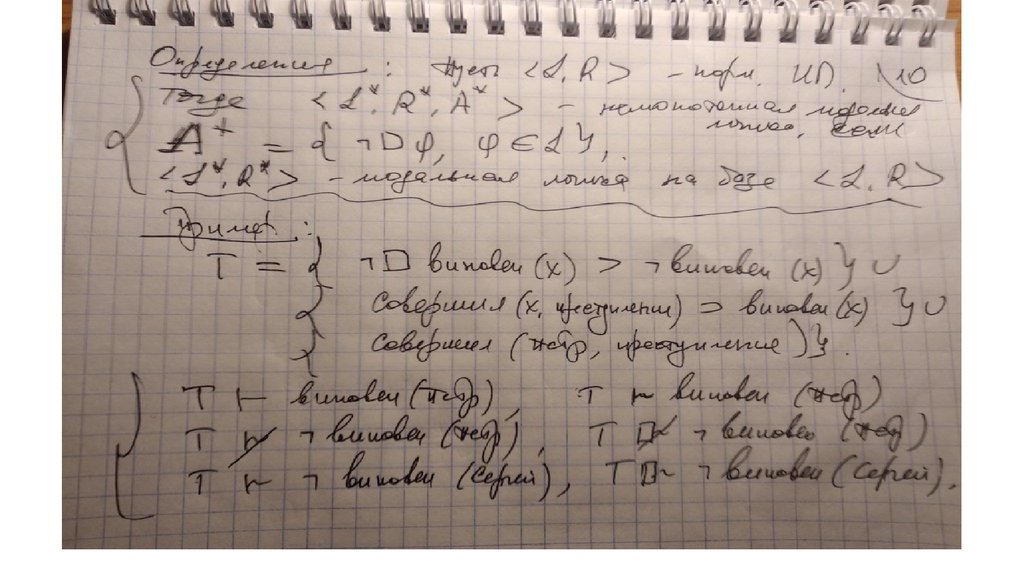 Определения : Пусть <L, R> – норм. ИП. \10
Тогда <L*, R*, A*> – немонотонная модальная логика, если
A* = { ¬□φ, φ ∈ L },
<L*, R*> – модальная логика на базе <L, R>
Пример :
T = { ¬□ виновен (x) ⊃ ¬ виновен (x) } ∪
{ совершил (x, преступление) ⊃ виновен (x) } ∪
{ совершил (Петр, преступление) }.
T ⊢ виновен (Петр), T ⊢ виновен (Петр)
T ⊬ ¬ виновен (Петр), T ⊬ ¬ виновен (Петр)
T ⊢ ¬ виновен (Сергей), T ⊢ ¬ виновен (Сергей).